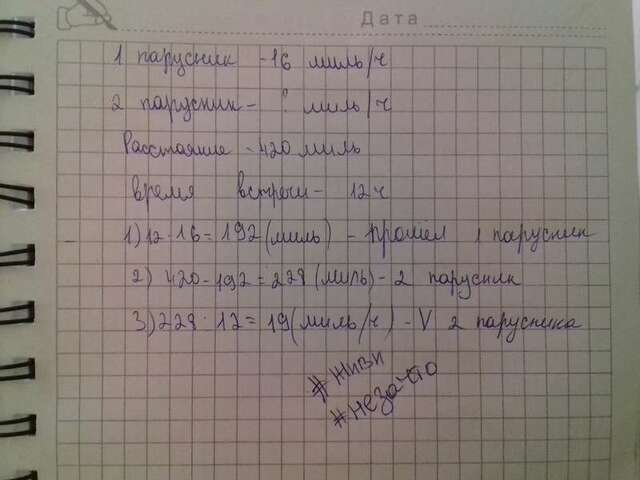 Дата
1 парусник - 16 миль/ч
2 парусник - ? миль/ч
Расстояние - 420 миль
время встречи - 12ч
1) 12 · 16 = 192 (миль) - прошёл 1 парусник
2) 420 - 192 = 228 (миль) - 2 парусник
3) 228 : 12 = 19 (миль/ч) - V 2 парусника
#живи
#незачто